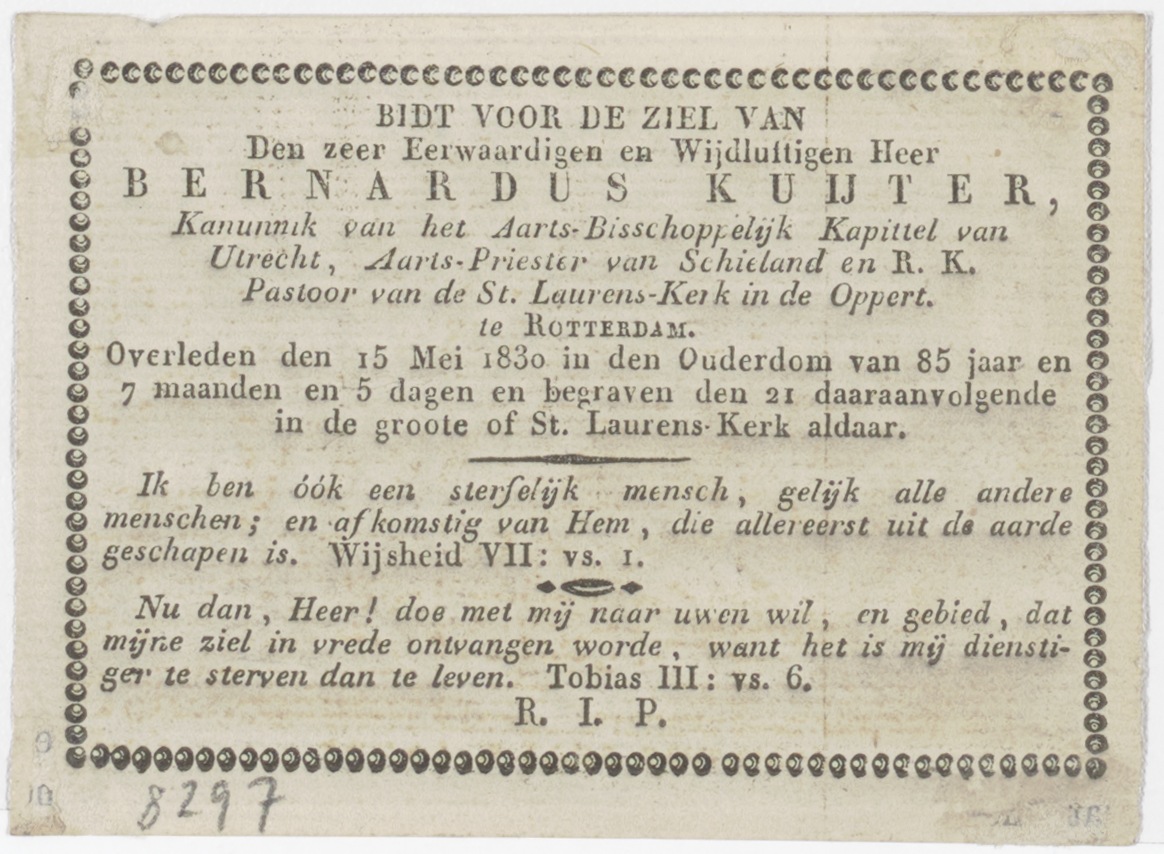 BIDT VOOR DE ZIEL VAN
Den zeer Eerwaardigen en Wijdluftigen Heer
BERNARDUS KUIJTER,
Kanunnik van het Aarts-Bisschoppelijk Kapittel van
Utrecht, Aarts-Priester van Schieland en R. K.
Pastoor van de St. Laurens-Kerk in de Oppert.
te ROTTERDAM.
Overleden den 15 Mei 1830 in den Ouderdom van 85 jaar en
7 maanden en 5 dagen en begraven den 21 daaraanvolgende
in de groote of St. Laurens-Kerk aldaar.
Ik ben óók een sterfelijk mensch, gelijk alle andere
menschen; en afkomstig van Hem, die allereerst uit de aarde
geschapen is. Wijsheid VII: vs. 1.
Nu dan, Heer! doe met mij naar uwen wil, en gebied, dat
mijne ziel in vrede ontvangen worde, want het is mij diensti-
ger te sterven dan te leven. Tobias III: vs. 6.
R. I. P.
8297